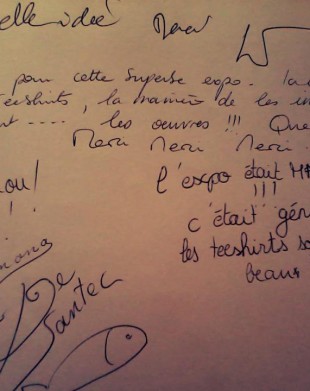 elle idée Merci
pour cette superbe expo. la
teeshirts, la manière de les in
nt .... les oeuvres !!! Que
Merci Merci Merci
ou!
l'expo était
!!!
c'était gén
les teeshirts so
beaux